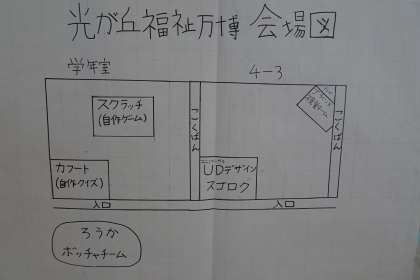 光が丘福祉万博 会場図
学年室
4-3
スクラッチ
(自作ゲーム)
こくばん
こくばん
カフート
(自作クイズ)
UDデザイン
スゴロク
入口
入口
ろうか
ボッチャチーム